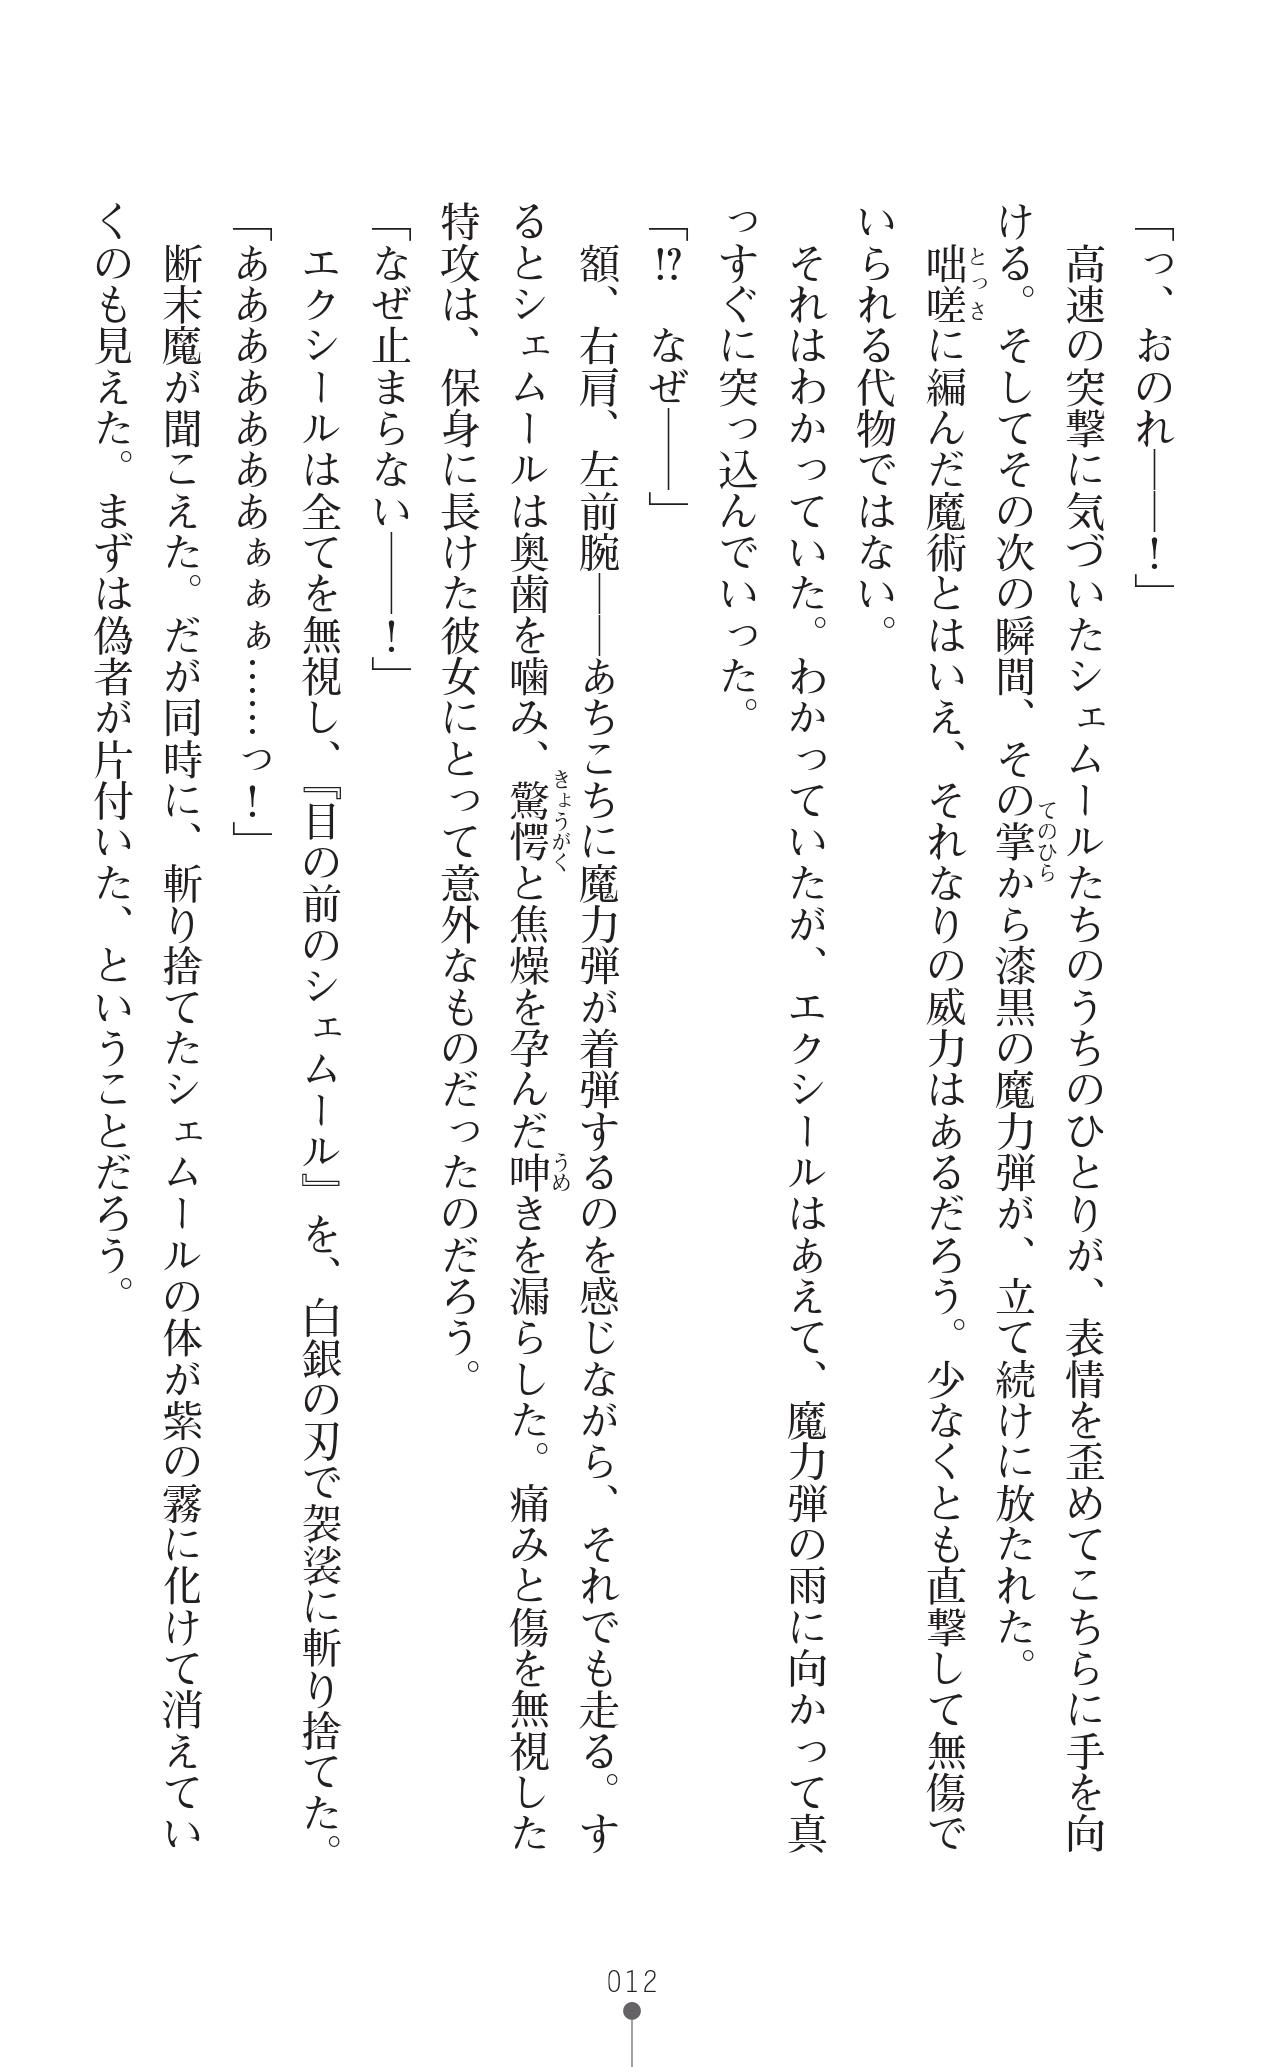 「っ、おのれ――！」
　高速の突撃に気づいたシェムールたちのうちのひとりが、表情を歪めてこちらに手を向
ける。そしてその次の瞬間、その掌から漆黒の魔力弾が、立て続けに放たれた。
てのひら
　咄嗟に編んだ魔術とはいえ、それなりの威力はあるだろう。少なくとも直撃して無傷で
とっさ
いられる代物ではない。
　それはわかっていた。わかっていたが、エクシールはあえて、魔力弾の雨に向かって真
っすぐに突っ込んでいった。
「!?　なぜ――」
　額、右肩、左前腕――あちこちに魔力弾が着弾するのを感じながら、それでも走る。す
るとシェムールは奥歯を噛み、驚愕と焦燥を孕んだ呻きを漏らした。痛みと傷を無視した
きょうがく
うめ
特攻は、保身に長けた彼女にとって意外なものだったのだろう。
「なぜ止まらない――！」
　エクシールは全てを無視し、『目の前のシェムール』を、白銀の刃で袈裟に斬り捨てた。
「あああああああぁぁぁ……っ！」
　断末魔が聞こえた。だが同時に、斬り捨てたシェムールの体が紫の霧に化けて消えてい
くのも見えた。まずは偽者が片付いた、ということだろう。
012